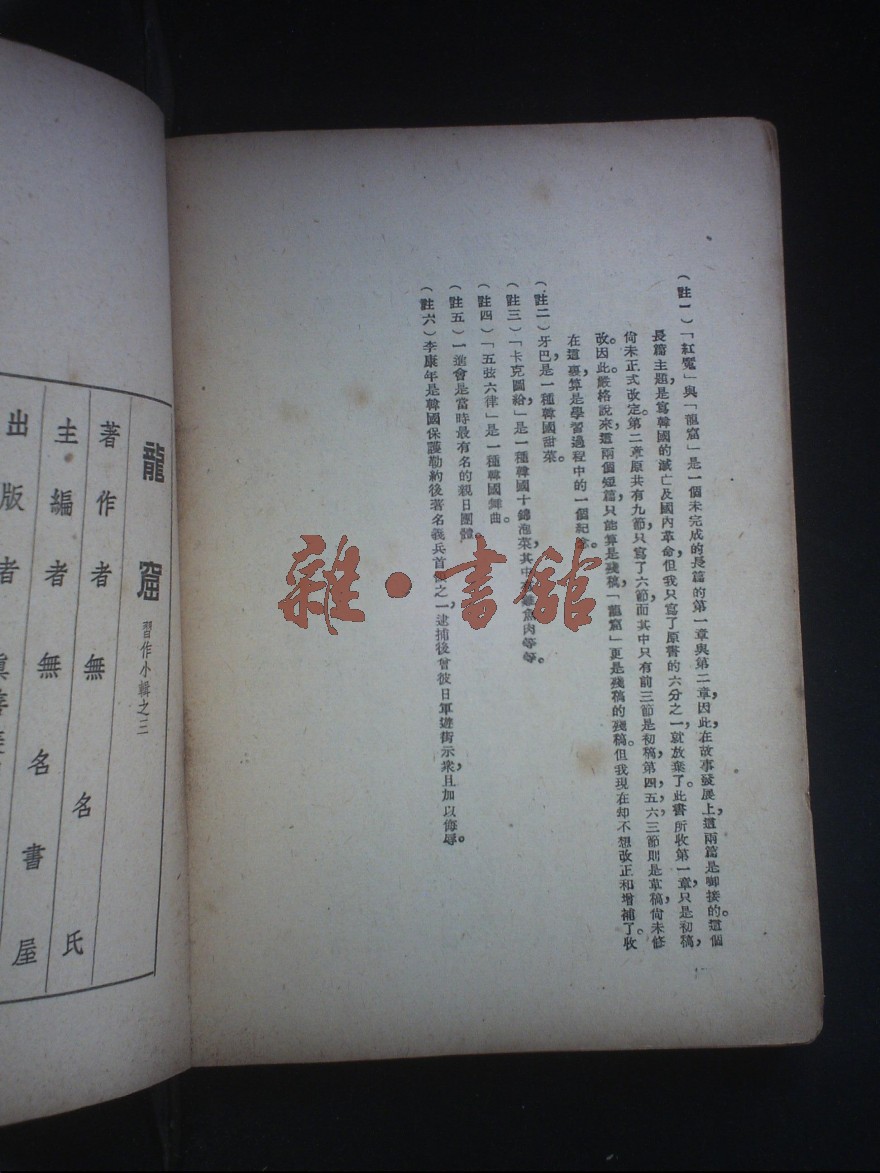 (註一)「紅魘」與「龍窟」是一個未完成的長篇的第一章與第二章,因此在故事發展上,這兩篇是啣接的。這個
長篇主題,是寫韓國的滅亡及國內革命,但我只寫了原書的六分之一,就放棄了。此書所收第一章,只是初稿,
尚未正式改定。第二章原共有九節,只寫了六節,而其中只有前三節是初稿,第四,五,六,三節則是草稿,尚未修
改。因此,嚴格說來,這兩個短篇,只能算是殘稿,「龍窟」更是殘稿的殘稿。但我現在卻不想改正和增補了。收
在這裏,算是學習過程中的一個紀念。
(註二)牙巴,是一種韓國甜菜。
(註三)「卡克圖給」是一種韓國十錦泡菜,其中 雞魚肉等等。
(註四)「五弦六律」是一種韓國舞曲。
(註五)一進會是當時最有名的親日團體。
(註六)李康年是韓國保護勒約後著名義兵首領之一,逮捕後曾彼日軍遊街示衆,且加以侮辱。
雜·書館
龍窟 習作小輯之三
著作者 無名氏
主編者 無名書屋
出版者